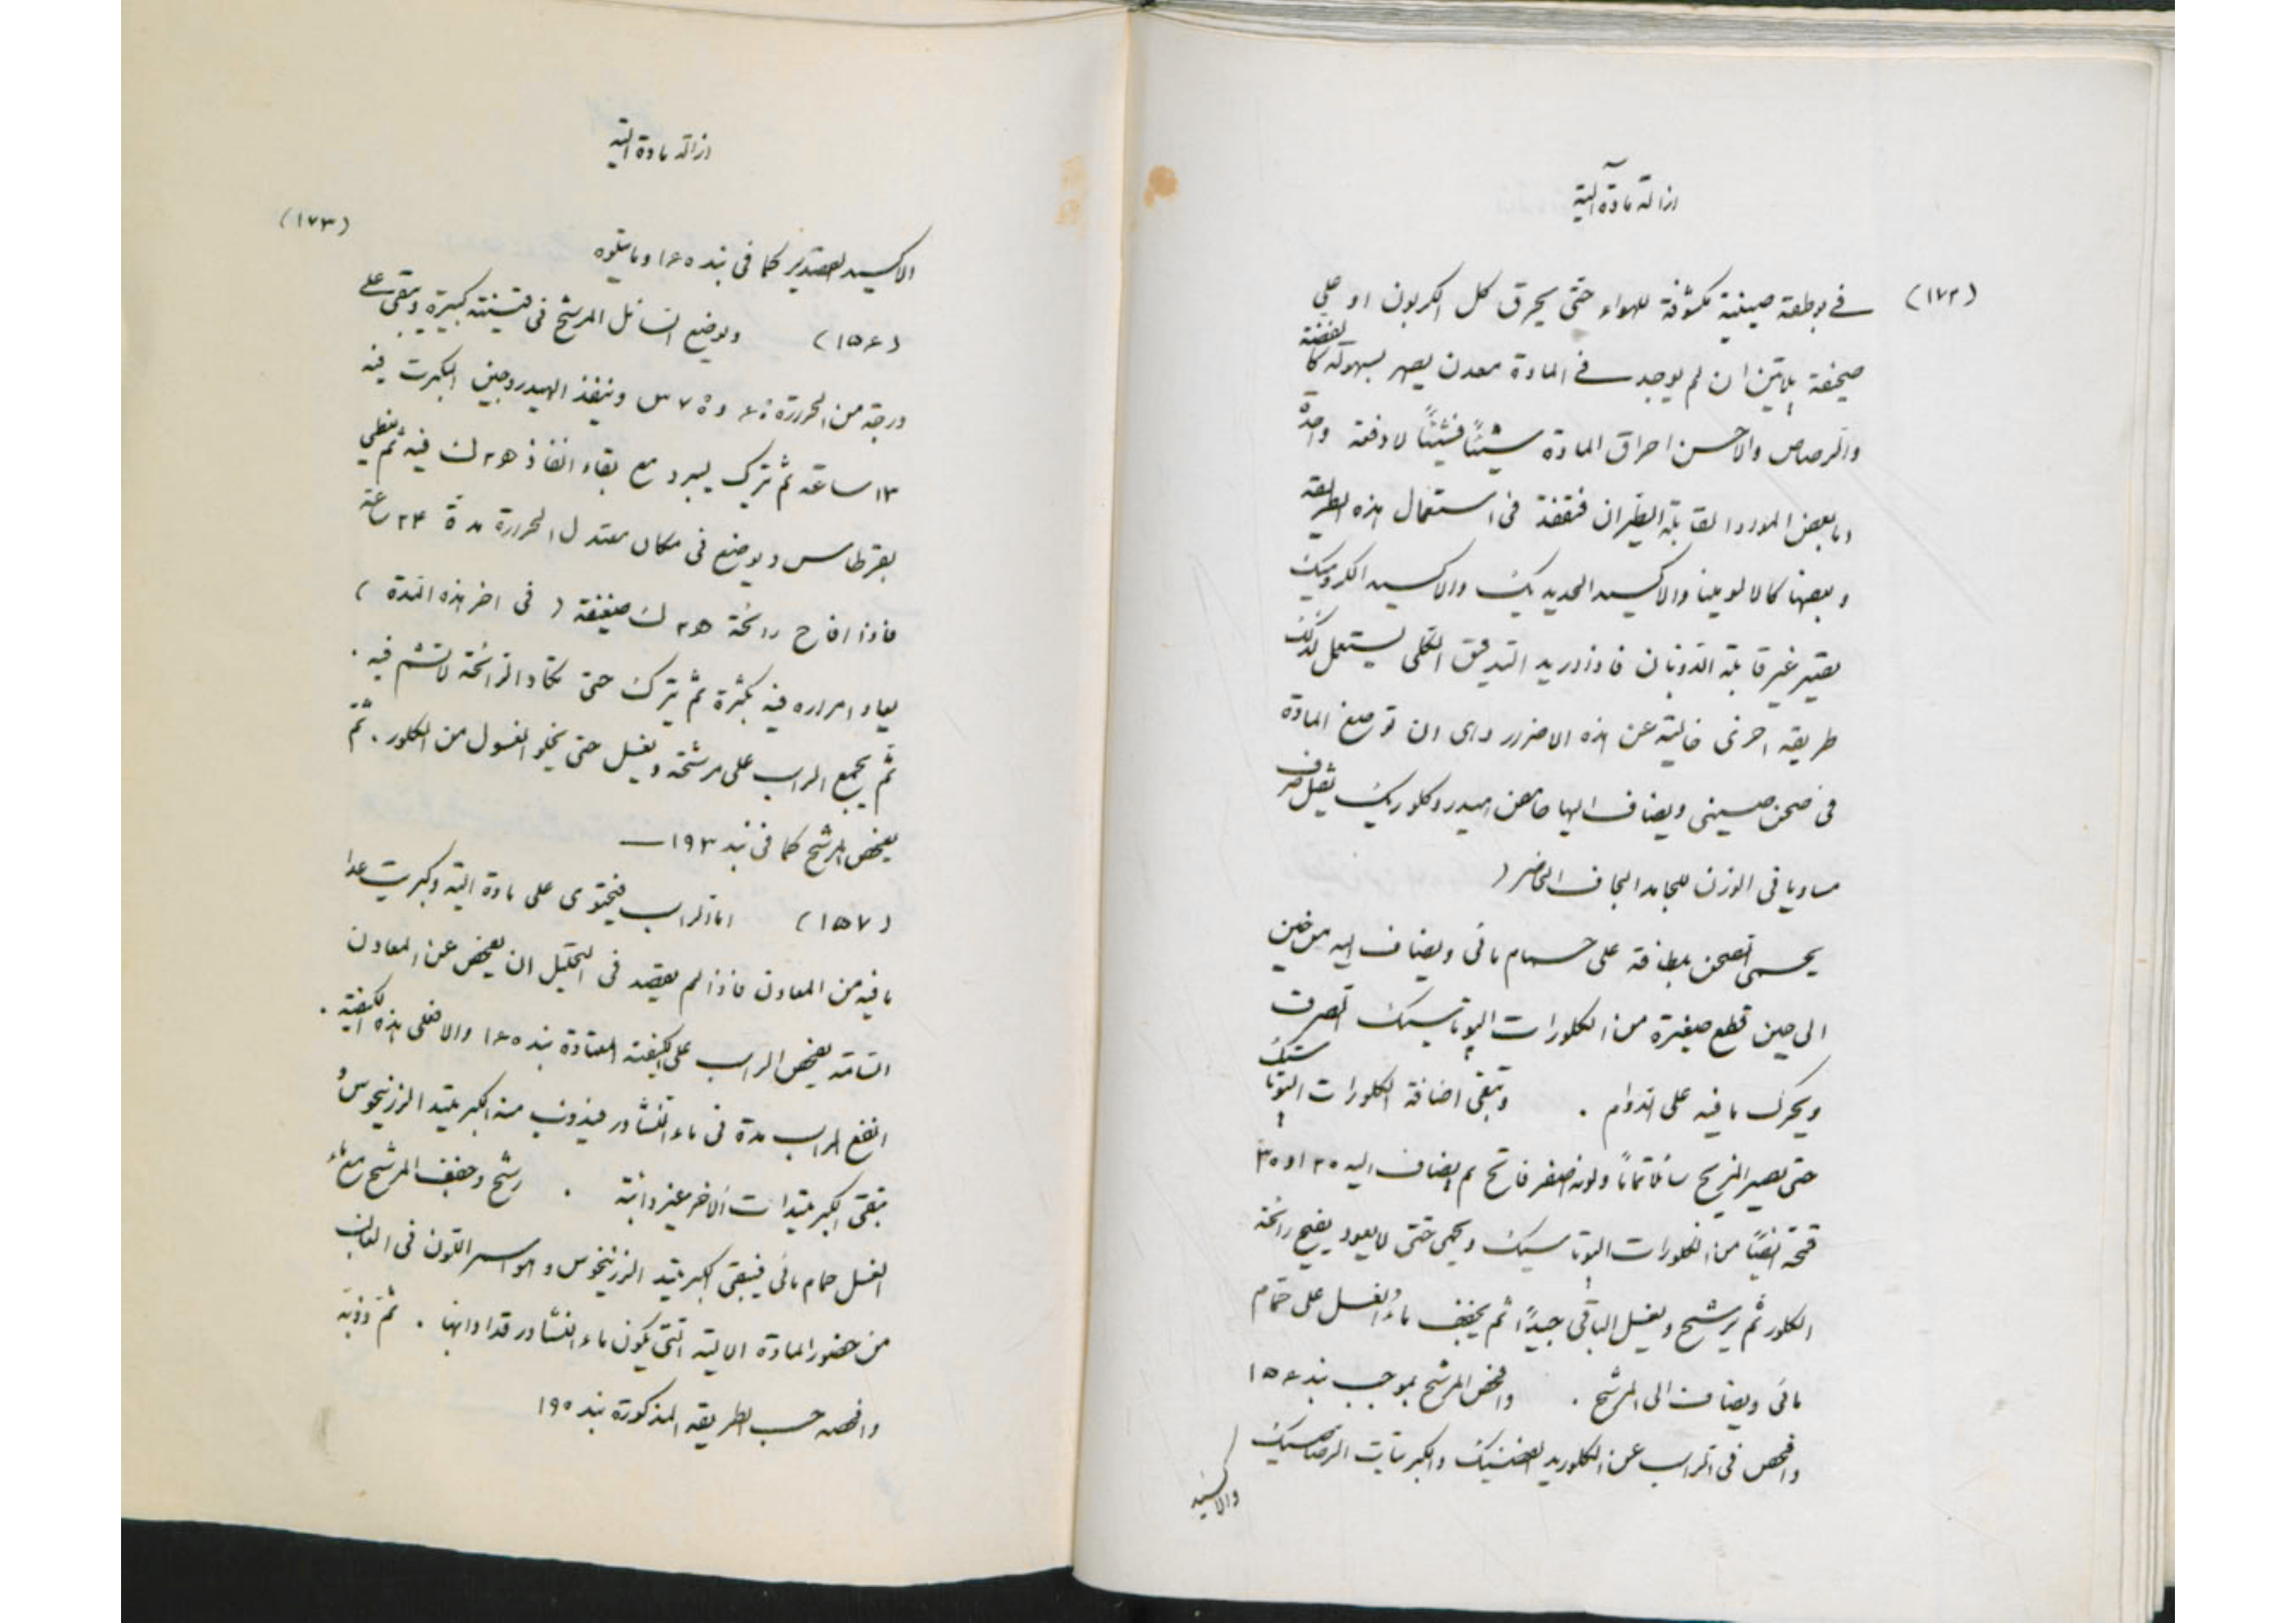 ازالة مادة آلية
(١٧٢)
في بوطقة صينية مكشوفة للهواء حتى يحرق كل الكربون او على
صحفة پلاتين ان لم يوجد في المادة معدن يصهر بسهولة كالفضة
والرصاص والاحسن احراق المادة شيئاً فشيئاً لا دفعة واحدة
اما بعض الموراد القابلة الطيران فتفقد في استعمال هذه الطريقة
وبعضها كالالومينا والاكسيد الحديديك والاكسيد الكروميك
يصير غير قابلة الذوبان فاذا اريد التدقيق الكلى يستعمل لذلك
طريقه اخرى خالية عن هذه الاضرار واى ان توضع المادة
في صحن صيني ويضاف اليها حامض هيدروكلوريك ثقل صرف
مساويا في الوزن للجامد الجاف الحاضر (
يحمى الصحن بلطافة على حمام مائى ويضاف اليه من حين
الى حين قطع صغيرة من الكلورات الپوتاسيك الصرف
ويحرك ما فيه على الدوام . وتبقى اضافة الكلورات الپوتاسيك
حتى يصير المزيج سائلا تماماً ولونه اصفر فاتح ثم يضاف اليه ٢٠ او ٣٠
قمحة ايضاً من الكلورات الپوتاسيك ويحمى حتى لا يعود يفيح رائحة
الكلور ثم يرشح ويغسل الباقى جيداً ثم يخفف ماء الغسل على حمام
مائى ويضاف الى المرشح . وافحص المرشح بموجب بند ١٥٦
وافحص في الراسب عن الكلوريد الفضيك والكبريتات الرصاصيك
والاكسيد
ازالة مادة الية
(١٧٣)
الاكسيد القصديريك كما في بند ١٦٥ وما يتلوه
(١٥٦) ويوضع السائل المرشح في قنينة كبيرة ويبقى على
درجة من الحرارة ٦٠ و ٧٥ س وينفذ الهيدروجين المكبرت فيه
١٢ ساعة ثم يترك ليبرد مع بقاء انفاذ ه٢ ك فيه ثم يغطي
بقرطاس ويوضع في مكان معتدل الحرارة مدة ٢٤ ساعة
فاذا افاح رائحة ه٢ ك ضعيفة ( في اخر هذه المدة )
يعاد امراره فيه بكثرة ثم يترك حتى تكاد الرائحة لا تشم فيه .
ثم يجمع الراسب على مرشحة ويغسل حتى يخلو الغسول من الكلور . ثم
يفحص المرشح كما في بند ١٩٣ —
(١٥٧) اما الراسب فيحتوى على مادة الية وكبريت عدا
ما فيه من المعادن فاذا لم يقصد في التحليل ان يفحص عن المعادن
السامة يفحص الراسب على الكيفية المعتادة بند ١٦٥ والا فعلى هذه الكيفية .
انقع الراسب مدة في ماء النشادر فيذوب منه الكبريتيد الزرنيخوس و
تبقى الكبريتيدات الاخر غير ذائبة . رشح وخفف المرشح مع ماء
الغسل حمام مائى فيبقى الكبريتيد الزرنيخوس وهو اسمر اللون في الغالب
من حضور المادة الالية التي يكون ماء النشادر قد اذابها . ثم ذوبه
وافحصه حسب الطريقه المذكورة بند ١٩٠